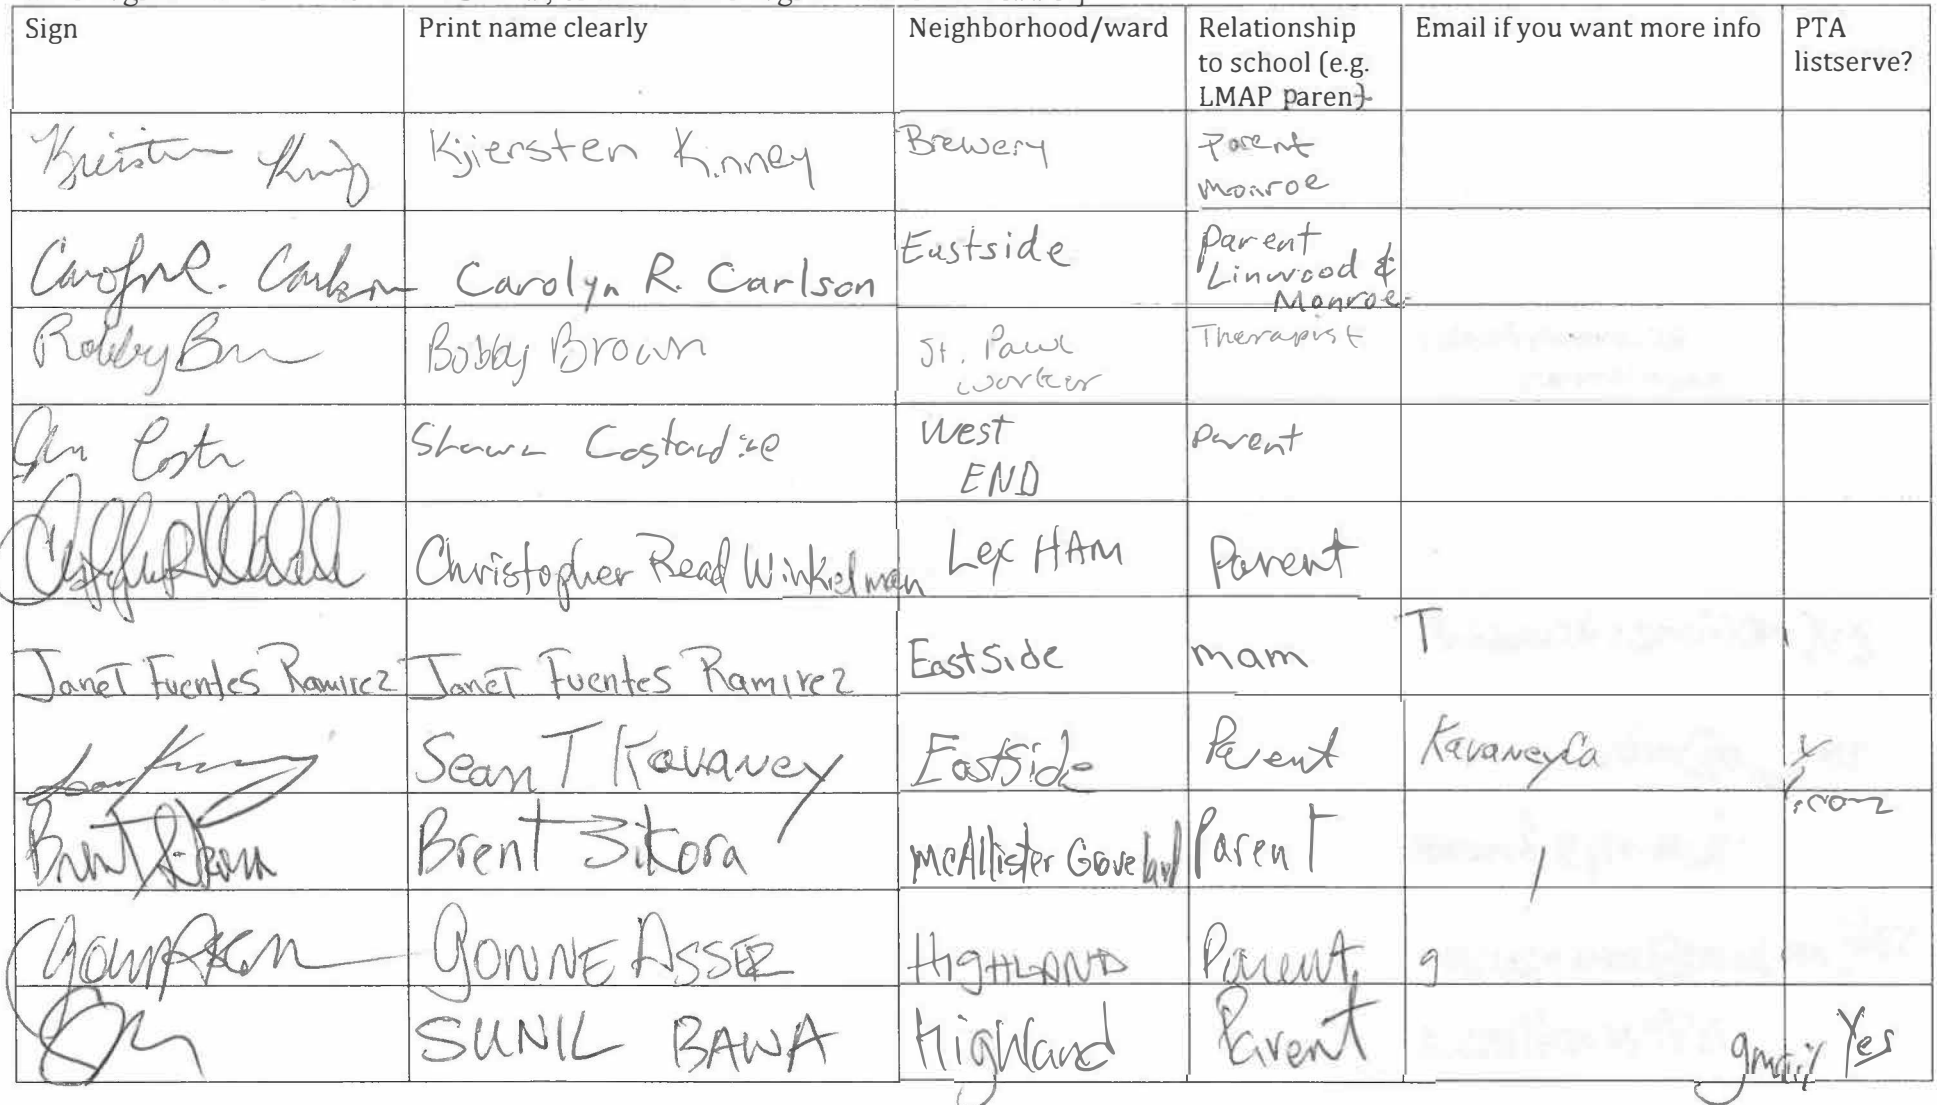 Sign Print name clearly Neighborhood/ward Relationship to school (e.g. LMAP parent) Email if you want more info PTA listserve?
Kjiersten Kinney Brewery Parent Monroe
Carolyn R. Carlson Carolyn R. Carlson Eastside Parent Linwood & Monroe
Bobby Brown St. Paul worker Therapist
Shawn West END Parent
Christopher Read Winkelman Lex HAM Parent
Janet Fuentes Ramirez Janet Fuentes Ramirez Eastside mam T
Sean T Kavaney Eastside Parent KavaneyCa
Brent Sikora McAllister Groveland Parent
GONNE ASSER HIGHLAND Parent g
SUNIL BAWA Highland Parent gmail Yes